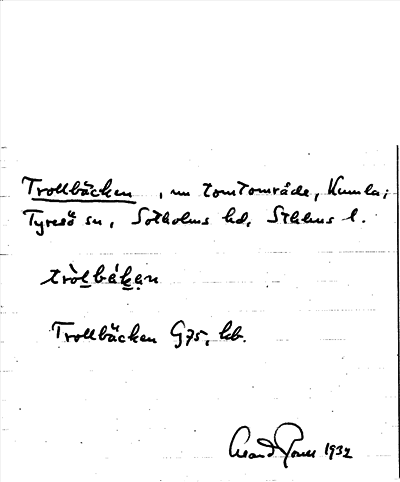 Trollbäcken, nu tomtområde, Kumla;
Tyresö sn, Sotholms hd, Sthlms l.
tròlbäkan
Trollbäcken G75, kb.
1932